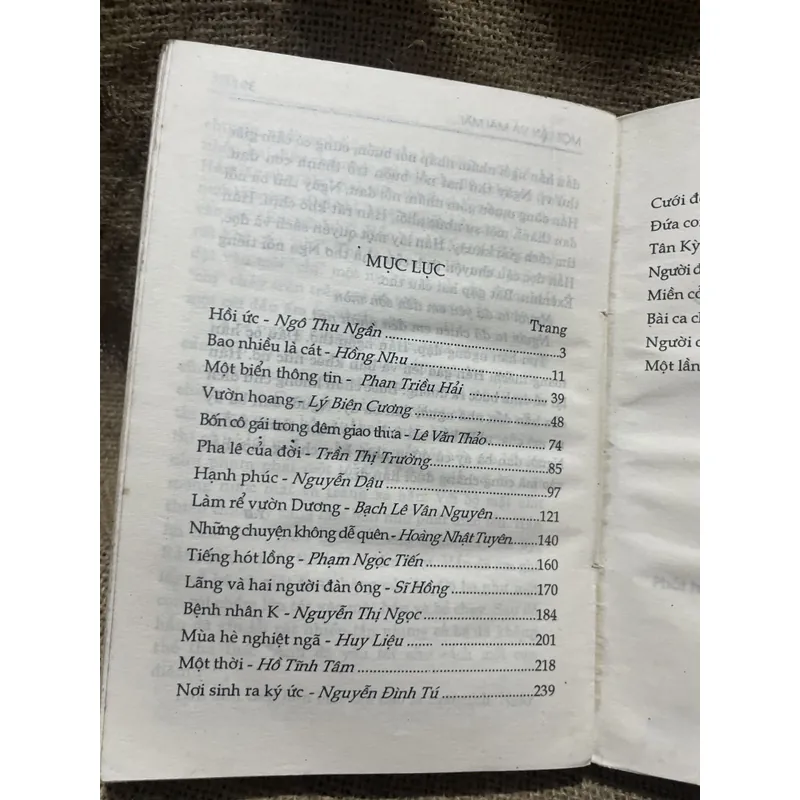 MỤC LỤC
Trang
Hồi ức - Ngô Thu Ngần ... 3
Bao nhiêu là cát - Hồng Nhu ... 11
Một biển thông tin - Phan Triều Hải ... 39
Vườn hoang - Lý Biên Cương ... 48
Bốn cô gái trong đêm giao thừa - Lê Văn Thảo ... 74
Pha lê của đời - Trần Thị Trường ... 85
Hạnh phúc - Nguyễn Dậu ... 97
Làm rể vườn Dương - Bạch Lê Vân Nguyên ... 121
Những chuyện không dễ quên - Hoàng Nhật Tuyên ... 140
Tiếng hót lồng - Phạm Ngọc Tiến ... 160
Lãng và hai người đàn ông - Sĩ Hồng ... 170
Bệnh nhân K - Nguyễn Thị Ngọc ... 184
Mùa hè nghiệt ngã - Huy Liệu ... 201
Một thời - Hồ Tĩnh Tâm ... 218
Nơi sinh ra ký ức - Nguyễn Đình Tú ... 239
Cưới
Đứa
Tân Kỳ
Người
Miền
Bài ca
Người
Một lần